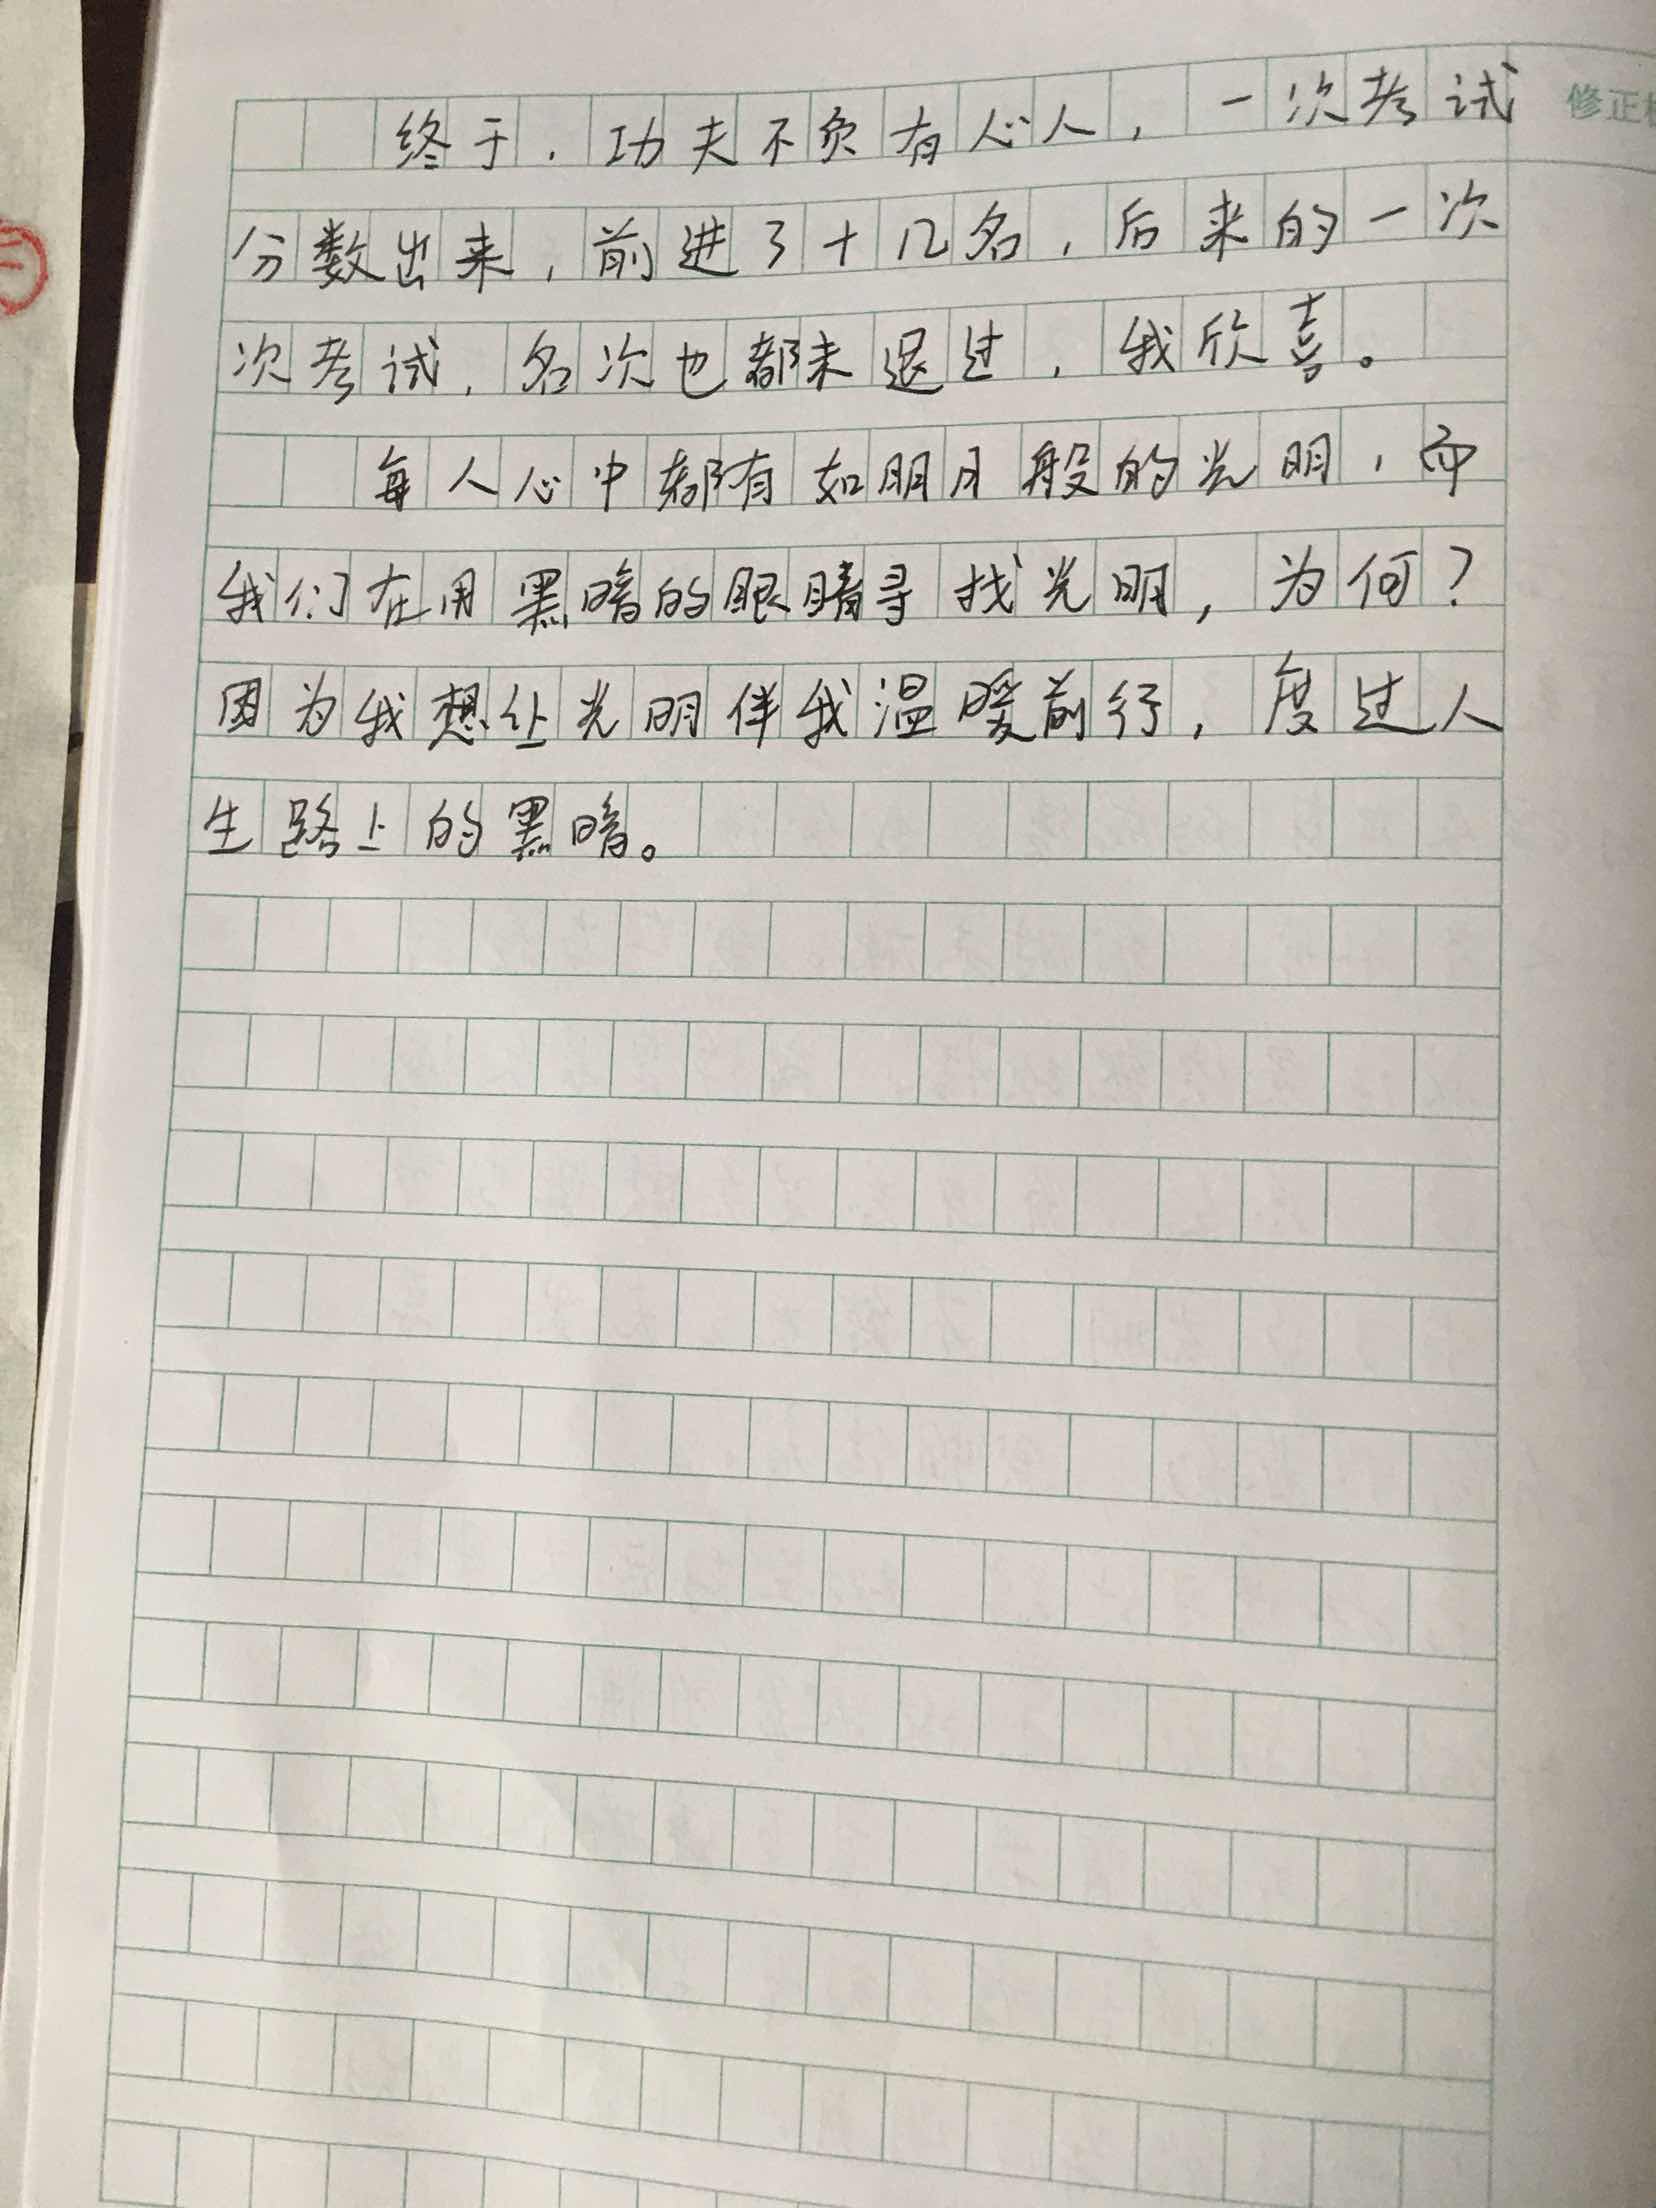 终于，功夫不负有心人，一次考试
分数出来，前进了十几名，后来的一次
次考试，名次也都未退过，我欣喜。
每人心中都有如明月般的光明，而
我们在用黑暗的眼睛寻找光明，为何？
因为我想让光明伴我温暖前行，度过人
生路上的黑暗。
修正